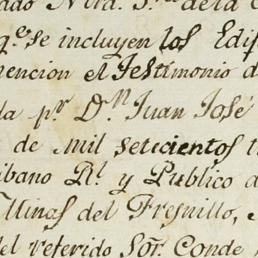 ado Ntra. Sra. de la C
q.e se incluyen los Edif
mencion el Testimonio d
da p.r D.n Juan José
de mil setecientos t
ribano R.l y Publico d
Minas del Fresnillo,
del referido Sor. Conde